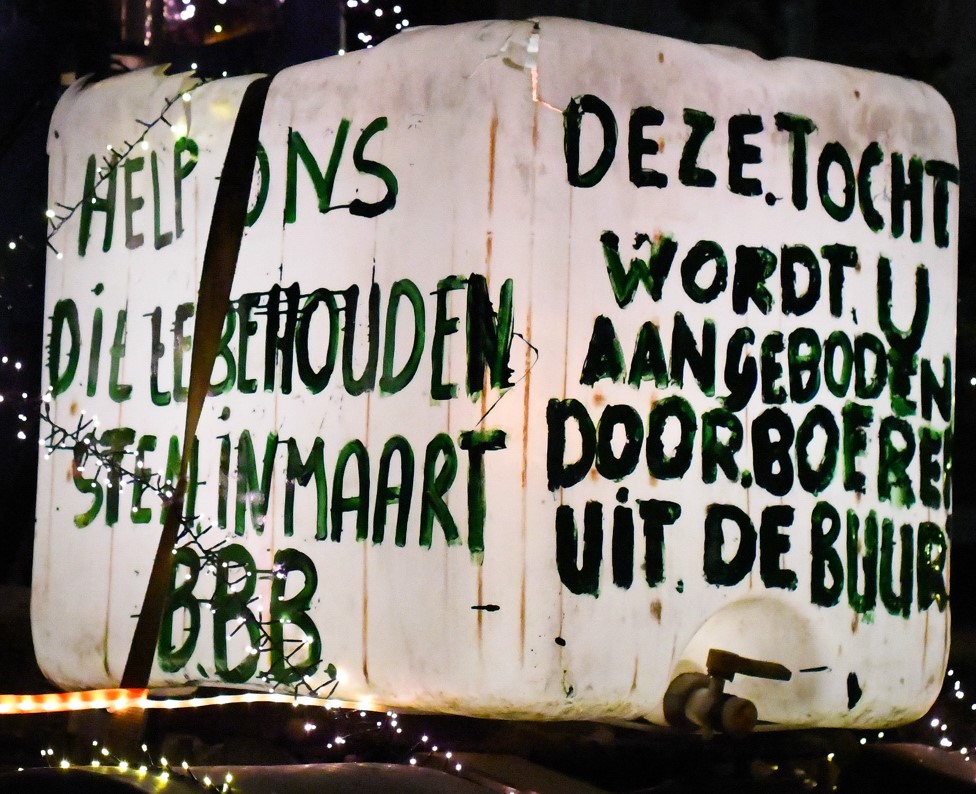 HELP ONS
DIE LEBEHOUDEN
STEM IN MAART
B.B.B.
DEZE.TOCHT
WORDT U
AANGEBODEN
DOOR.BOEREN
UIT. DE BUUR